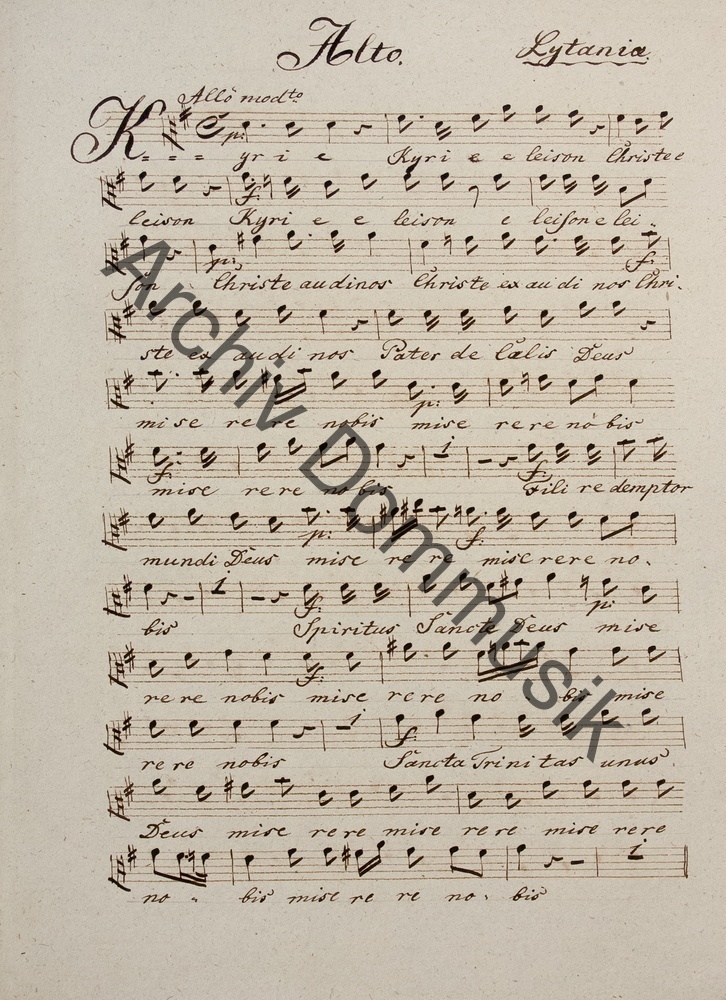 Alto.
Lytaniæ
Allo modto
K - - - yr i e Kyri e e leison Christe e
leison Kyri e e leison e leison e lei -
son Christe audinos Christe ex au di nos Chri -
ste ex au di nos Pater de Cælis Deus
mi se re re nobis mise re re no bis
mise re re no bis Fili re demptor
mundi Deus mise re re mise re re no -
bis Spiritus Sancte Deus mise
re re nobis mise re re no bis mise
re re nobis Sancta Trini tas unus
Deus mise re re mise re re mise re re
no - bis mise re re no - bis
Archiv Dommusik